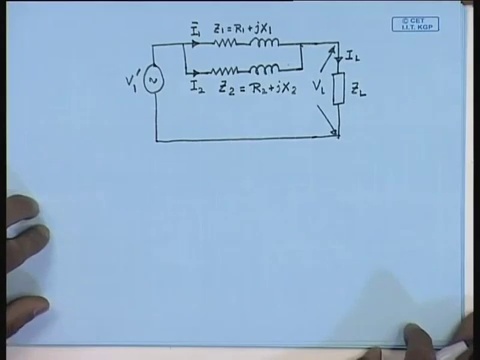 © CET
I.I.T. KGP
Ī₁ Z₁ = R₁ + jX₁
I_L
V₁′
I₂ Z₂ = R₂ + jX₂
V_L
Z_L